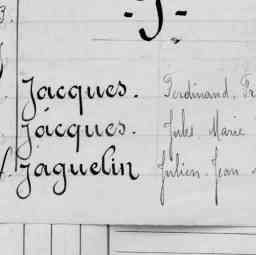 - J -
Jacques. Ferdinand. Fr
Jacques. Jules Marie
Jaguelin Julien. Jean